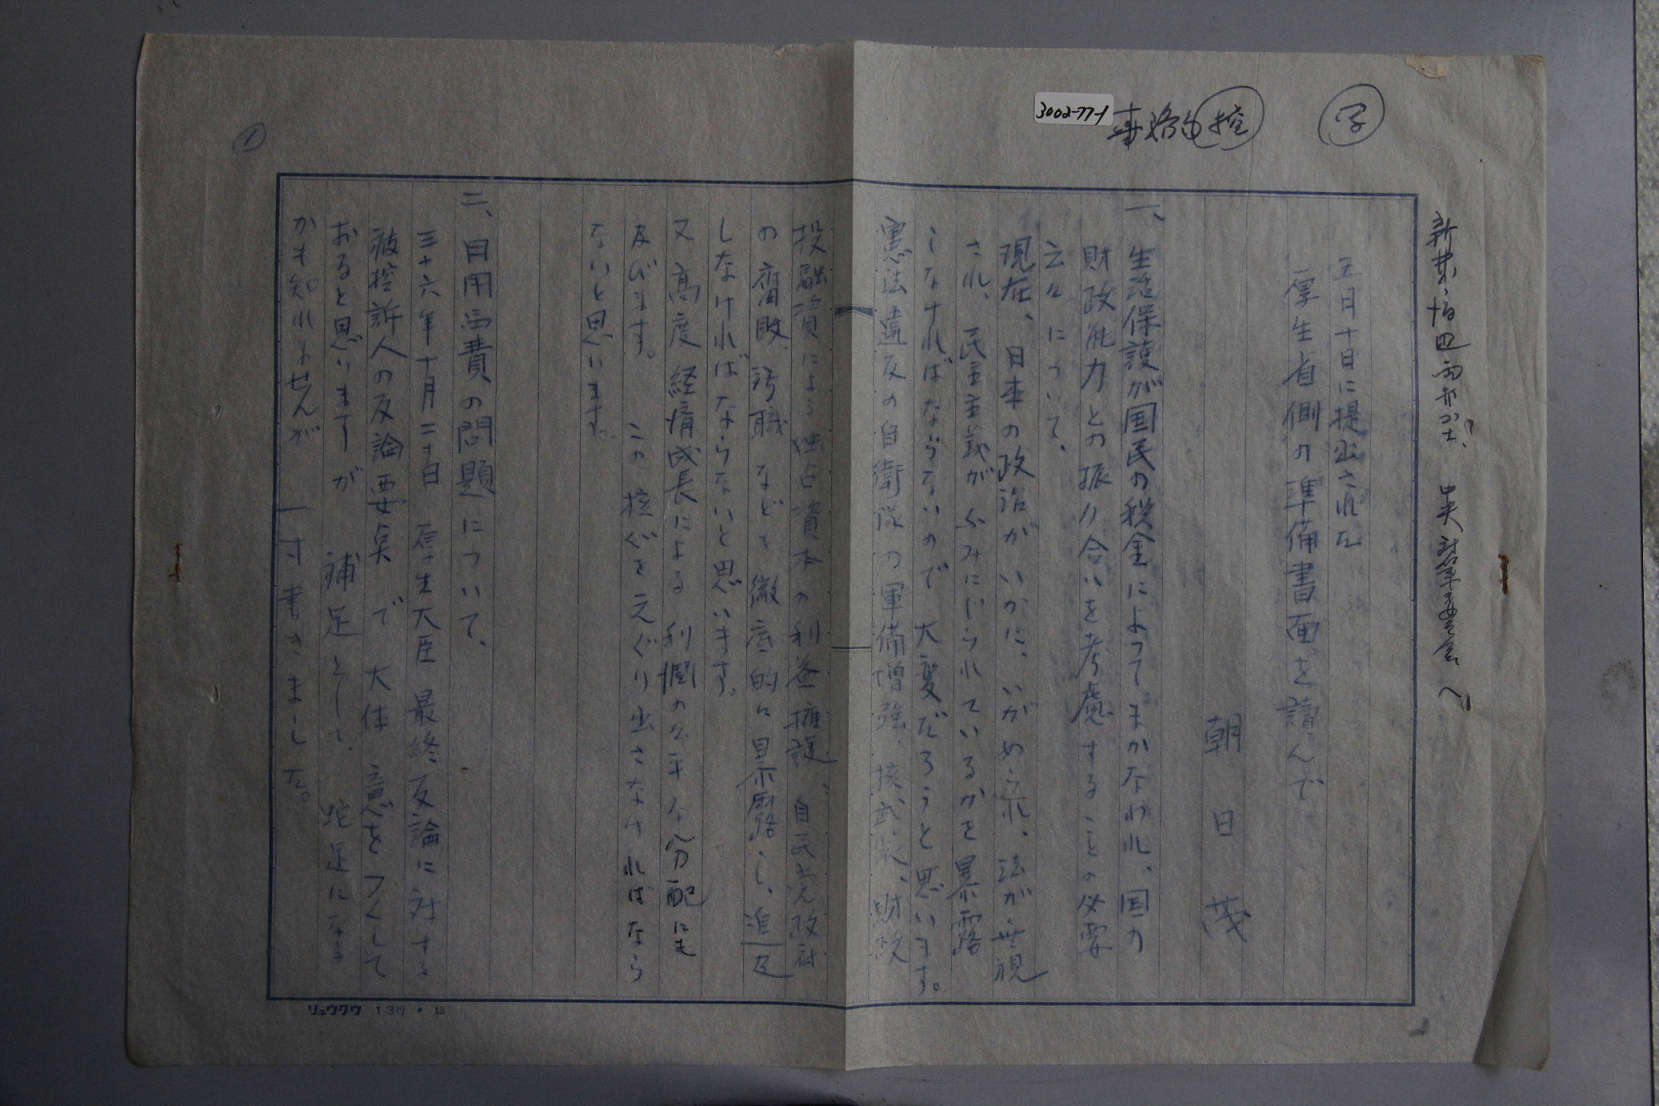 写
控
3002-77-1
五月十日に提出された
厚生省側の準備書面を読んで
朝日茂
一、生活保護が国民の税金によってまかなわれ、国の
財政能力との振り合いを考慮することの必要
云々について、
現在、日本の政治がいかに、いがめられ、法が無視
され、民主主義がふみにじられているかを暴露
しなければならないので大変だろうと思います。
憲法違反の自衛隊の軍備増強、核武装、財政
投融資による独占資本の利益擁護、自民党政府
の腐敗、汚職などを徹底的に暴露し、追及
しなければならないと思います。
又、高度経済成長による利潤の公平な分配にも
及びます。この核心をえぐり出さなければなら
ないと思います。
二、日用品費の問題について、
三十六年十月二十日厚生大臣最終反論に対する
被控訴人の反論要点で大体意をつくして
おると思いますが補足として、蛇足になる
かも知れませんが一寸書きました。
1
リュウワウ 137